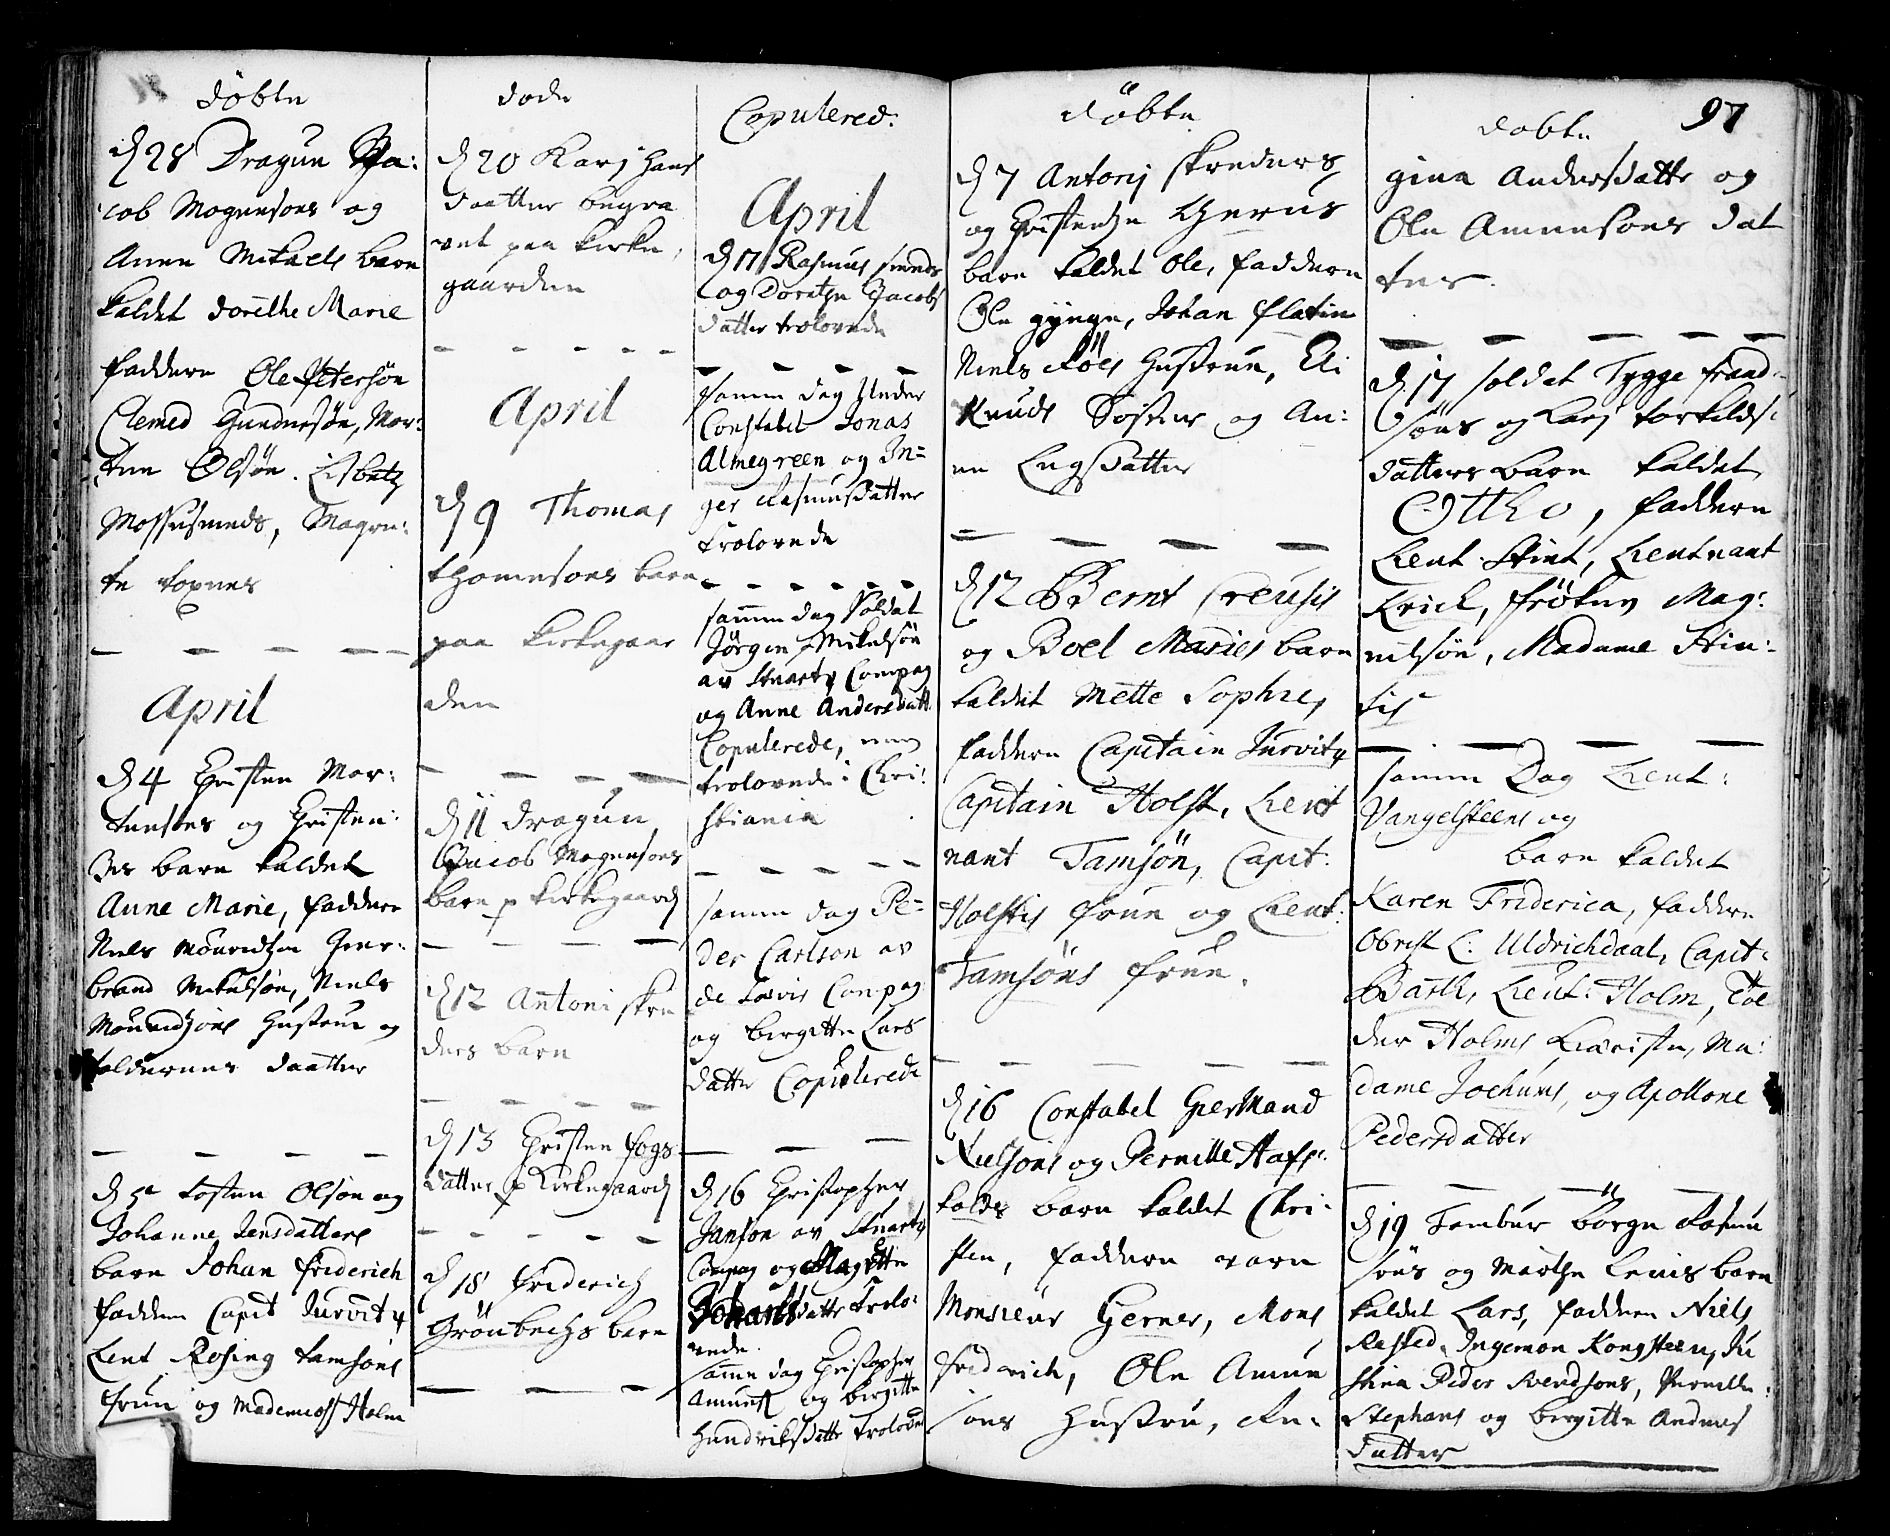 döbte
d 28 Dragun Ja:
cob Mogensons og
Anne Mikaels barn
kaldet Dorethe Marie
faddere Ole Petersön
Clemed Gundersön, Mor:
ten Olsön. Lisbetz
Mossesmeds, Magre:
te
April
d 4 Christen Mor:
tensöns og Christen:
des barn kaldet
Anne Marie, faddere
Niels Mouridtzen
brand Mikelsön, Niels
Mouridsöns Hustrue og
datter
d 5 Tosten Olson og
Johanne Jensdatters
barn Johan friderich
faddere Capit Jurvitz
Leut Rosing Tamsöns
frue og Mademois Holm
döde
d 20 Karj Hans
daatter begra
vet paa kirke
gaarden
April
d 9 Thomas
Thomesöns barn
paa kirkegaar
den
d 11 dragun
Jacob Mogensöns
barn p kirkegaard
d 12 Antoni skre
ders barn
d 13 Christen fogs
datter p Kirkegaard
d 18 friderich
Grönbechs barn
Copulered:
April
d 17 Rasmus
og Dorethe Jacobs
datter trolovede
samme dag Under
Constabel Jonas
Almegreen og In=
ger Rasmusdatter
trolovede
samme dag Soldat
Jörgen Mikelsön
av Stuartz Compag
og Anne Andersdatt.
Copulerede,
trolovede i Chri:
stiania
samme dag Pe=
der Carlson av
de Compag
og birgitte Lars
datter Copulerede
d 16 Christopher
Janson av Stuartz
Compag og Magrette
datter Trolo:
vede.
samme dag Christopher
Amunds og birgitte
Hendriksdatter trolovede
döbte
d 7 Antonj skreders
og Christentze
barn kaldet Ole, faddere
Ole gynge, Johan flatin
Niels Hustrue, Eli
Knuds Söster og An:
ne
d 12 Bernt Creusis
og Boel Maries barn
kaldet Mette Sophie,
faddere Capitain Jurvitz
Capitain Holst, Lieut
nant Tamsön, Capit:
Holstis frue og Lieut:
Tamsöns frue.
d 16 Constabel
og Pernille
barn kaldet Chri:
sten, faddere vare
Monsieur Gerner, Mons
fridrich, Ole Amun
söns Hustru, Re:
97
döbte
gina Andersdatter og
Ole Amunsons dat
ter.
d 17 soldat Tygge frand
söns og Karj torkelds
datters barn kaldet
Ottho, faddere
Leut Stint, Lieutnant
Krick, fröken Mag:
nilsön, Madame Stin:
tis
samme Dag Lieut:
Vangelsteens og
barn kaldet
Karen Friderica, faddere
Obrist L: Uldrichdaal, Capit:
Barth, Lieut: Holm, Tol
der Holms Kieriste, Ma:
dame Jochums, og Apollone
Pedersdatter
d 19 Tambur Börge Rasmu
söns og Marthe Lenis barn
kaldet Lars, faddere Niels
Rasted, Ingemon Kongsteen, Ju
stina Peder Svendsons, Pernille
Stephans og birgitte Anders
datter